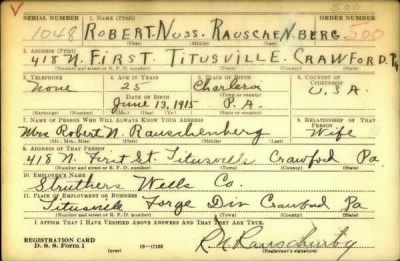 500
SERIAL NUMBER 1. NAME (Print) ORDER NUMBER
1048 ROBERT. NUSS. RAUSCHENBERG 500
(First) (Middle) (Last)
2. ADDRESS (Print)
418 N. FIRST TITUSVILLE. CRAWFORD. Pa
(Number and street or R. F. D. number) (Town) (County) (State)
3. TELEPHONE 4. AGE IN YEARS 5. PLACE OF BIRTH 6. COUNTRY OF CITIZENSHIP
None 25 Charleroi U.S.A.
DATE OF BIRTH (Town or county)
June 13, 1915 P.A.
(Exchange) (No.) (Mo.) (Day) (Yr.) (State or country)
7. NAME OF PERSON WHO WILL ALWAYS KNOW YOUR ADDRESS 8. RELATIONSHIP OF THAT PERSON
Mrs Robert N. Rauschenberg Wife
(Mr., Mrs., Miss) (First) (Middle) (Last)
9. ADDRESS OF THAT PERSON
418 N. First St. Titusville Crawford Pa.
(Number and street or R. F. D. number) (Town) (County) (State)
10. EMPLOYER'S NAME
Struthers Wells Co.
11. PLACE OF EMPLOYMENT OR BUSINESS
Titusville Forge Div Crawford Pa
(Number and street or R. F. D. number) (Town) (County) (State)
I AFFIRM THAT I HAVE VERIFIED ABOVE ANSWERS AND THAT THEY ARE TRUE.
REGISTRATION CARD
D. S. S. Form 1 (over) 16—17105 R N Rauschenberg
(Registrant's signature)